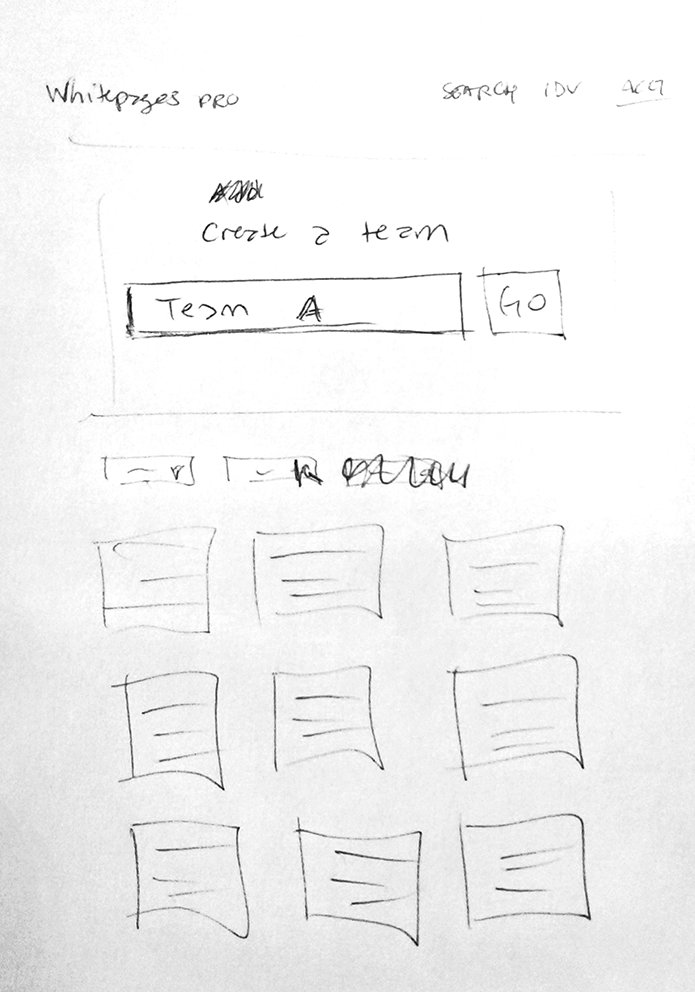 Whitepages PRO
SEARCH IDV ACCT
Create a team
Team A
GO